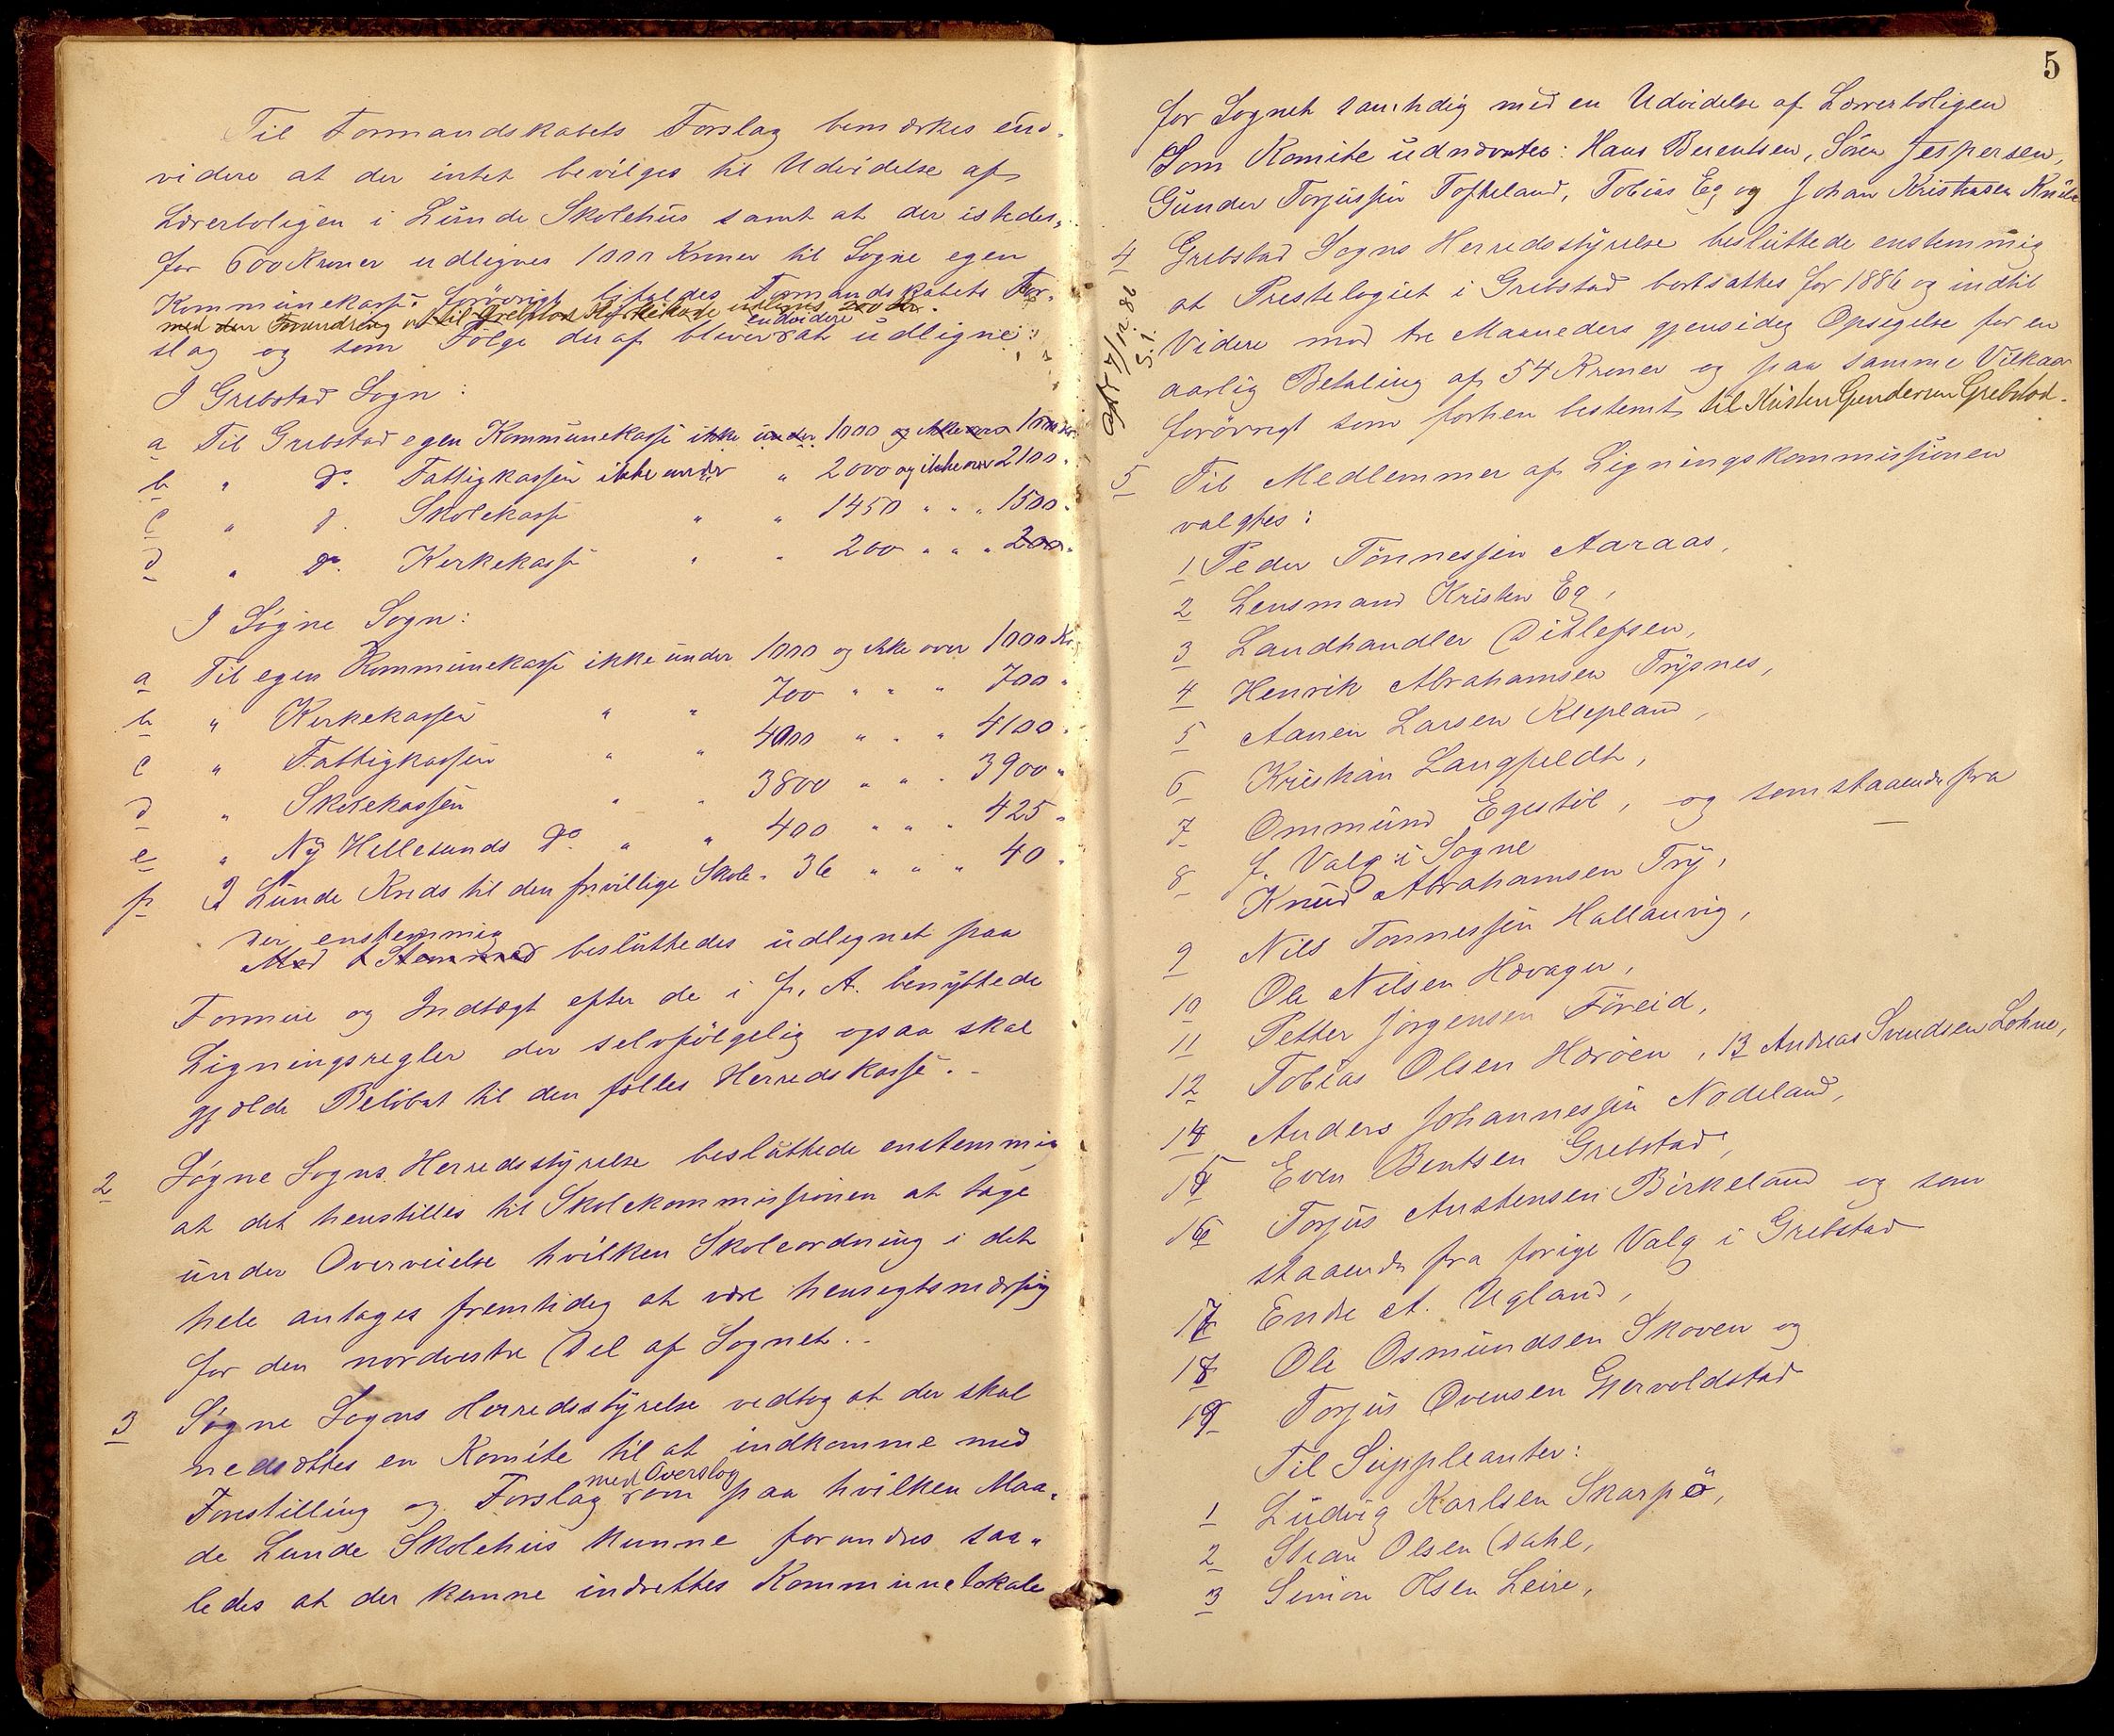 Til Formandskabets Forslag bemærkes end-
videre at der intet bevilges til Udvidelse af
Lærerboligen i Lunde Skolehus samt at der istedet-
for 600 Kroner udlignes 1000 Kroner til Søgne egen
Kommunekasse. forøvrigt bifaldes Formandskabets For-
med den Forandring at til Grebstad Kirkekasse udlignes 200 Kr.
slag og som Følge deraf bliver endvidere at udligne:
I Grebstad Sogn:
a Til Grebstad egen Kommunekasse ikke under 1000 og ikke over 1000 Kr.
b " Do. Fattigkassen ikke under " 2000 og ikke over 2100 "
c " d. Skolekasse " " 1450 " " " 1500 "
d " Do. Kirkekasse " " 200 " " " 200 "
I Søgne Sogn:
a Til egen Kommunekasse ikke under 1000 og ikke over 1000 Kr.
b " Kirkekassen " " 700 " " " 700 "
c " Fattigkassen " " 4000 " " " 4100 "
d " Skolekassen " " 3800 " " " 3900 "
e " Ny Hellesunds Do. " " 400 " " " 425 "
f I Lunde Kreds til den frivillige Skole " 36 " " " 40 "
der enstemmig
Med Stemmer besluttedes udlignet paa
Formue og Indtægt efter de i f. A. benyttede
Ligningsregler der selvfølgelig ogsaa skal
gjælde Beløbet til den fælles Herredskasse. -
2 Søgne Sogns Herredsstyrelse besluttede enstemmig
at det henstilles til Skolekommissionen at tage
under Overveielse hvilken Skoleordning i det
hele antages fremtidig at være hensigtsmæssig
for den nordvestre Del af Sognet. -
3 Søgne Sogns Herredsstyrelse vedtog at der skal
nedsættes en Komite til at indkomme med
Forestilling og Forslag med Overslag om paa hvilken Maa-
de Lunde Skolehus kunne forandres saa-
ledes at der kunne indrettes Kommunelokale
5
for Sognet samtidig med en Udvidelse af Lærerboligen
Som Komite udnævntes: Hans Berentsen, Søren Jespersen,
Gunder Torjussen Tofteland, Tobias Eg og Johan Kristensen
4 Grebstad Sogns Herredsstyrelse besluttede enstemmig
at Prestelogiet i Grebstad bortsættes for 1886 og indtil
Videre mod tre Maaneders gjensidig Opsigelse for en
aarlig Betaling af 54 Kroner og paa samme Vilkaar
forøvrigt som forhen bestemt til Kristen Gundersen Grebstad.
7/12 86
S. 1.
5 Til Medlemmer af Ligningskommissionen
valgtes:
1 Peder Tønnessen Aaraas,
2 Lensmand Kristen Eg,
3 Landhandler Ditlefsen,
4 Henrik Abrahamsen Trysnes,
5 Aanen Larsen Klepland,
6 Kristian Langfeldt,
7 Ommund Egestøl, og som staaende fra
f. Valg i Søgne
8 Knud Abrahamsen Try,
9 Nils Tønnessen Hallanvig,
10 Ole Nilsen Høvager,
11 Petter Jørgensen Føreid,
12 Tobias Olsen Herøen, 13 Andreas Svendsen Lohne,
14 Anders Johannessen Nodeland,
15 Even Bentsen Grebstad,
16 Torjus Austensen Birkeland og som
staaende fra forige Valg i Grebstad
17 Endre A. Ugland,
18 Ole Osmundsen Skoven og
19 Torjus Ovensen Gjervoldstad
Til Suppleanter:
1 Ludvig Karlsen Skarpø,
2 Stian Olsen Dahl,
3 Simon Olsen Leire,